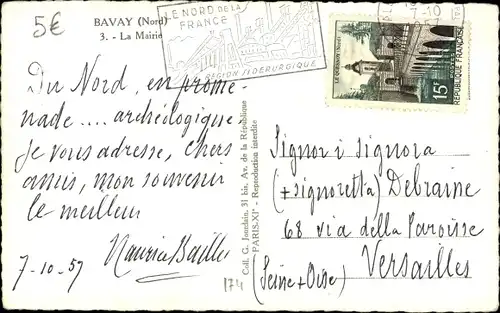 5€
BAVAY (Nord)
3. - La Mairie
LE NORD DE LA
FRANCE
RÉGION SIDÉRURGIQUE
LE QUESNOY (Nord)
15F
REPUBLIQUE FRANÇAISE
Du Nord, en prome-
nade.... archéologique,
je vous adresse, chers
amis, mon souvenir
le meilleur
Maurice Bailly
7-10-57
Coll. G. Jourdain, 31 bis, Av. de la République
PARIS-XIe - Reproduction interdite
174
Signor i Signora
(+ signoretta) Debraine
68 via della Paroisse
Versailles
(Seine + Oise)